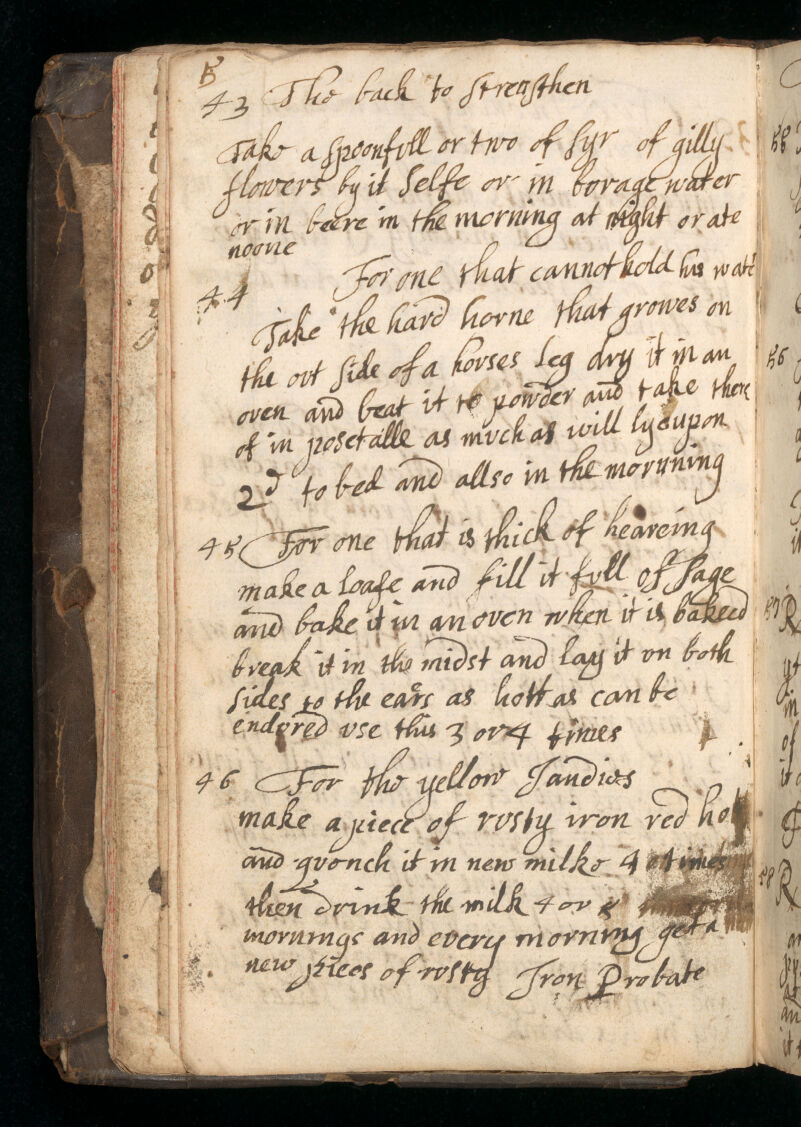 B
43 The back to stregthen
Take a spoonfvll or two of syr of gilly
flowers by it selfe or in borage water
or in beere in the morning at night or ate
noone
44 For one that cannot hold his wate
Take the hard horne that growes on
the ovt side of a horses leg dry it in an
oven and beat it to powder and take there
of in posetalle as mvch as will lye upon
2d to bed and allso in the mornning
45 For one that is thick of heareing
make a loafe and fill it fvll of sage
and bake it in an oven when it is bakeed
break it in the midst and lay it on both
sides to the ears as hott as can be
endored vse this 3 or 4 times
46 For the yellow Jandies
make a piece of rvsty iron red hot
and qvonch it in new milke 4 times
then drink the milk 4 or
mornings and every morning get a
new piees of rosty Iron Probate
55
56
57 R
yt
in
of
58 R